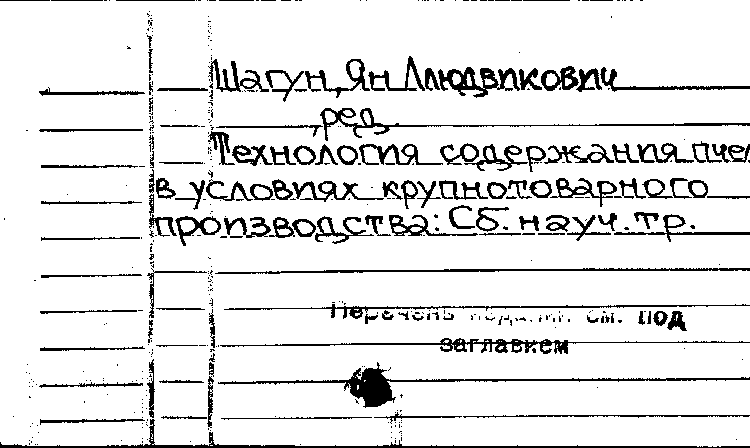 Шагун, Ян Людвикович
, ред.
Технология содержания пче
в условиях крупнотоварного
производства: Сб. науч. тр.
Перечень изданий см. под
заглавием